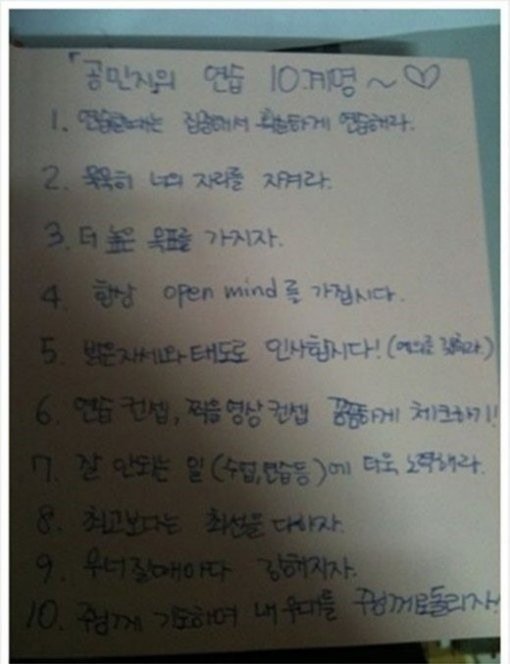 「공민지의 연습 10.계명~♡
1. 연습할때는 집중해서 확실하게 연습해라.
2. 묵묵히 너의 자리를 지켜라.
3. 더 높은 목표를 가지자.
4. 항상 open mind를 가집시다.
5. 밝은자세와 태도로 인사합시다! (예의를 갖춰라)
6. 연습 컨셉, 찍음영상 컨셉 꼼꼼하게 체크하기!
7. 잘 안되는 일 (수업,연습등)에 더욱 노력해라.
8. 최고보다는 최선을 다하자.
9. 무너질때마다 강해지자.
10. 주님께 기도하며 내 무대를 주님께로돌리자!